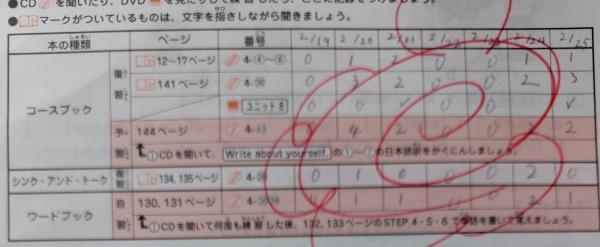 ●CD を聞いたり、DVD
● マークがついているものは、文字を指さしながら聞きましょう。
本の種類 ページ 番号 2/19 2/20 2/21 2/22 2/24 2/25
コースブック 復習 12~17ページ 4-④~⑥ 0 1 2 0 0 1 1
141ページ 0 3 2 0 0 2 3
ユニット8 0 0 ✓ 0 0 ✓
予習 144ページ 4 2 0 0 2 2
①CDを聞いて、Write about yourself.の ~ の日本語訳をかくにんしましょう。
シンク・アンド・トーク 復習 134, 135ページ 0 1 0 0 0 2 0
ワードブック 自習 130, 131ページ 1 1 0 0 2 1
①CDを聞いて何度も練習した後、132, 133ページのSTEP 4・5・6で単語を書いて覚えましょう。